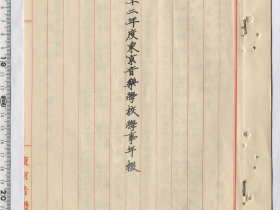 十二年度東京音樂學校學事年報